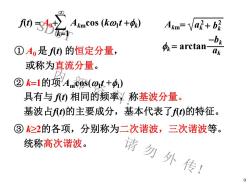 f(t) = A₀ + ∑ Aₖₘcos (kω₁t +ϕₖ)
k=1
Aₖₘ= √(aₖ² + bₖ²)
ϕₖ = arctan (−bₖ / aₖ)
① A₀ 是 f(t) 的恒定分量，
或称为直流分量。
② k=1的项 A₁ₘcos(ω₁t +ϕ₁)
具有与 f(t) 相同的频率，称基波分量。
基波占f(t)的主要成分，基本代表了f(t)的特征。
③ k≥2的各项，分别称为二次谐波，三次谐波等。
统称高次谐波。
请勿外传！
9